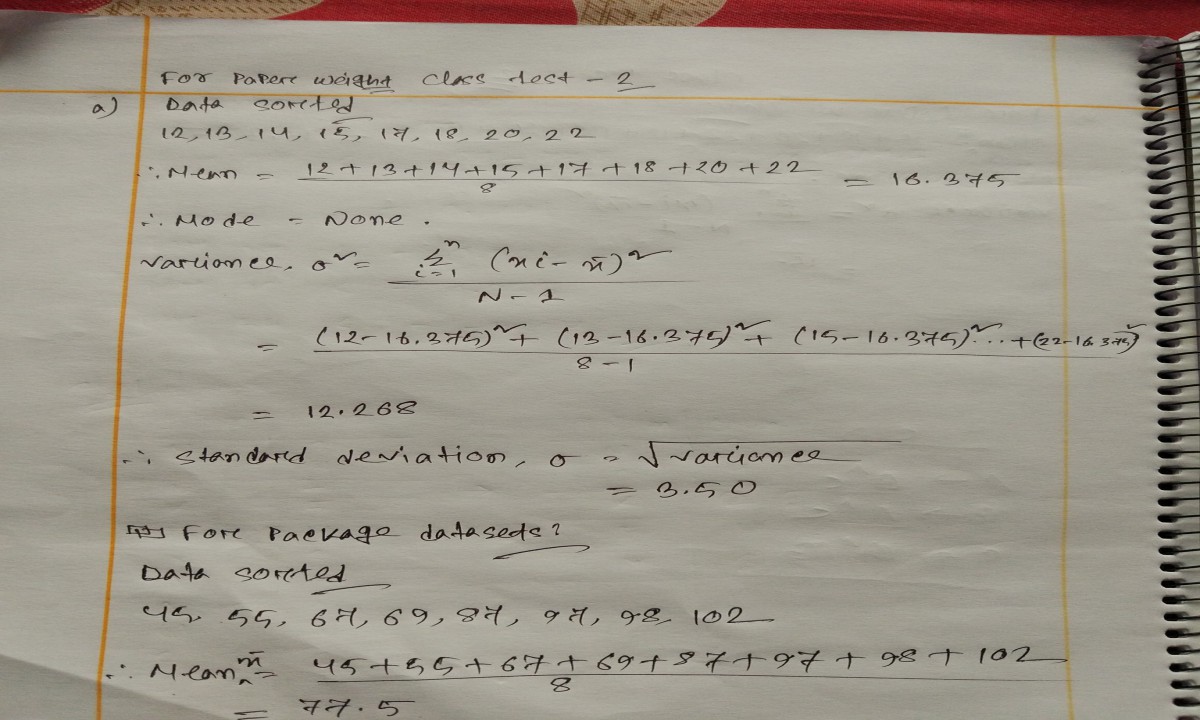 For Papere weight Class test - 2
a) Data sorcted
12, 13, 14, 15, 17, 18, 20, 22
∴ Mean = (12+13+14+15+17+18+20+22)/8 = 16.375
∴ Mode = None.
varciance, σ² = Σⁿᵢ₌₁ (xi - x̄)² / N-1
= ((12-16.375)² + (13-16.375)² + (15-16.375)² ... + (22-16.375)²) / 8-1
= 12.268
∴ standarcd deviation, σ = √varciance
= 3.50
Forc Package datasets?
Data sorcted
45, 55, 67, 69, 87, 97, 98, 102
∴ Mean, x̄ = (45+55+67+69+87+97+98+102)/8
= 77.5